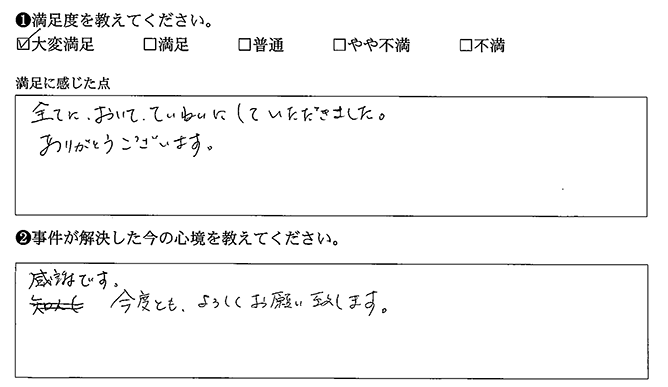 ❶満足度を教えてください。
☑大変満足 □満足 □普通 □やや不満 □不満
満足に感じた点
全てに、おいて、ていねいにして いただきました。
ありがとうございます。
❷事件が解決した今の心境を教えてください。
感謝です。
今度とも、よろしくお願い致します。